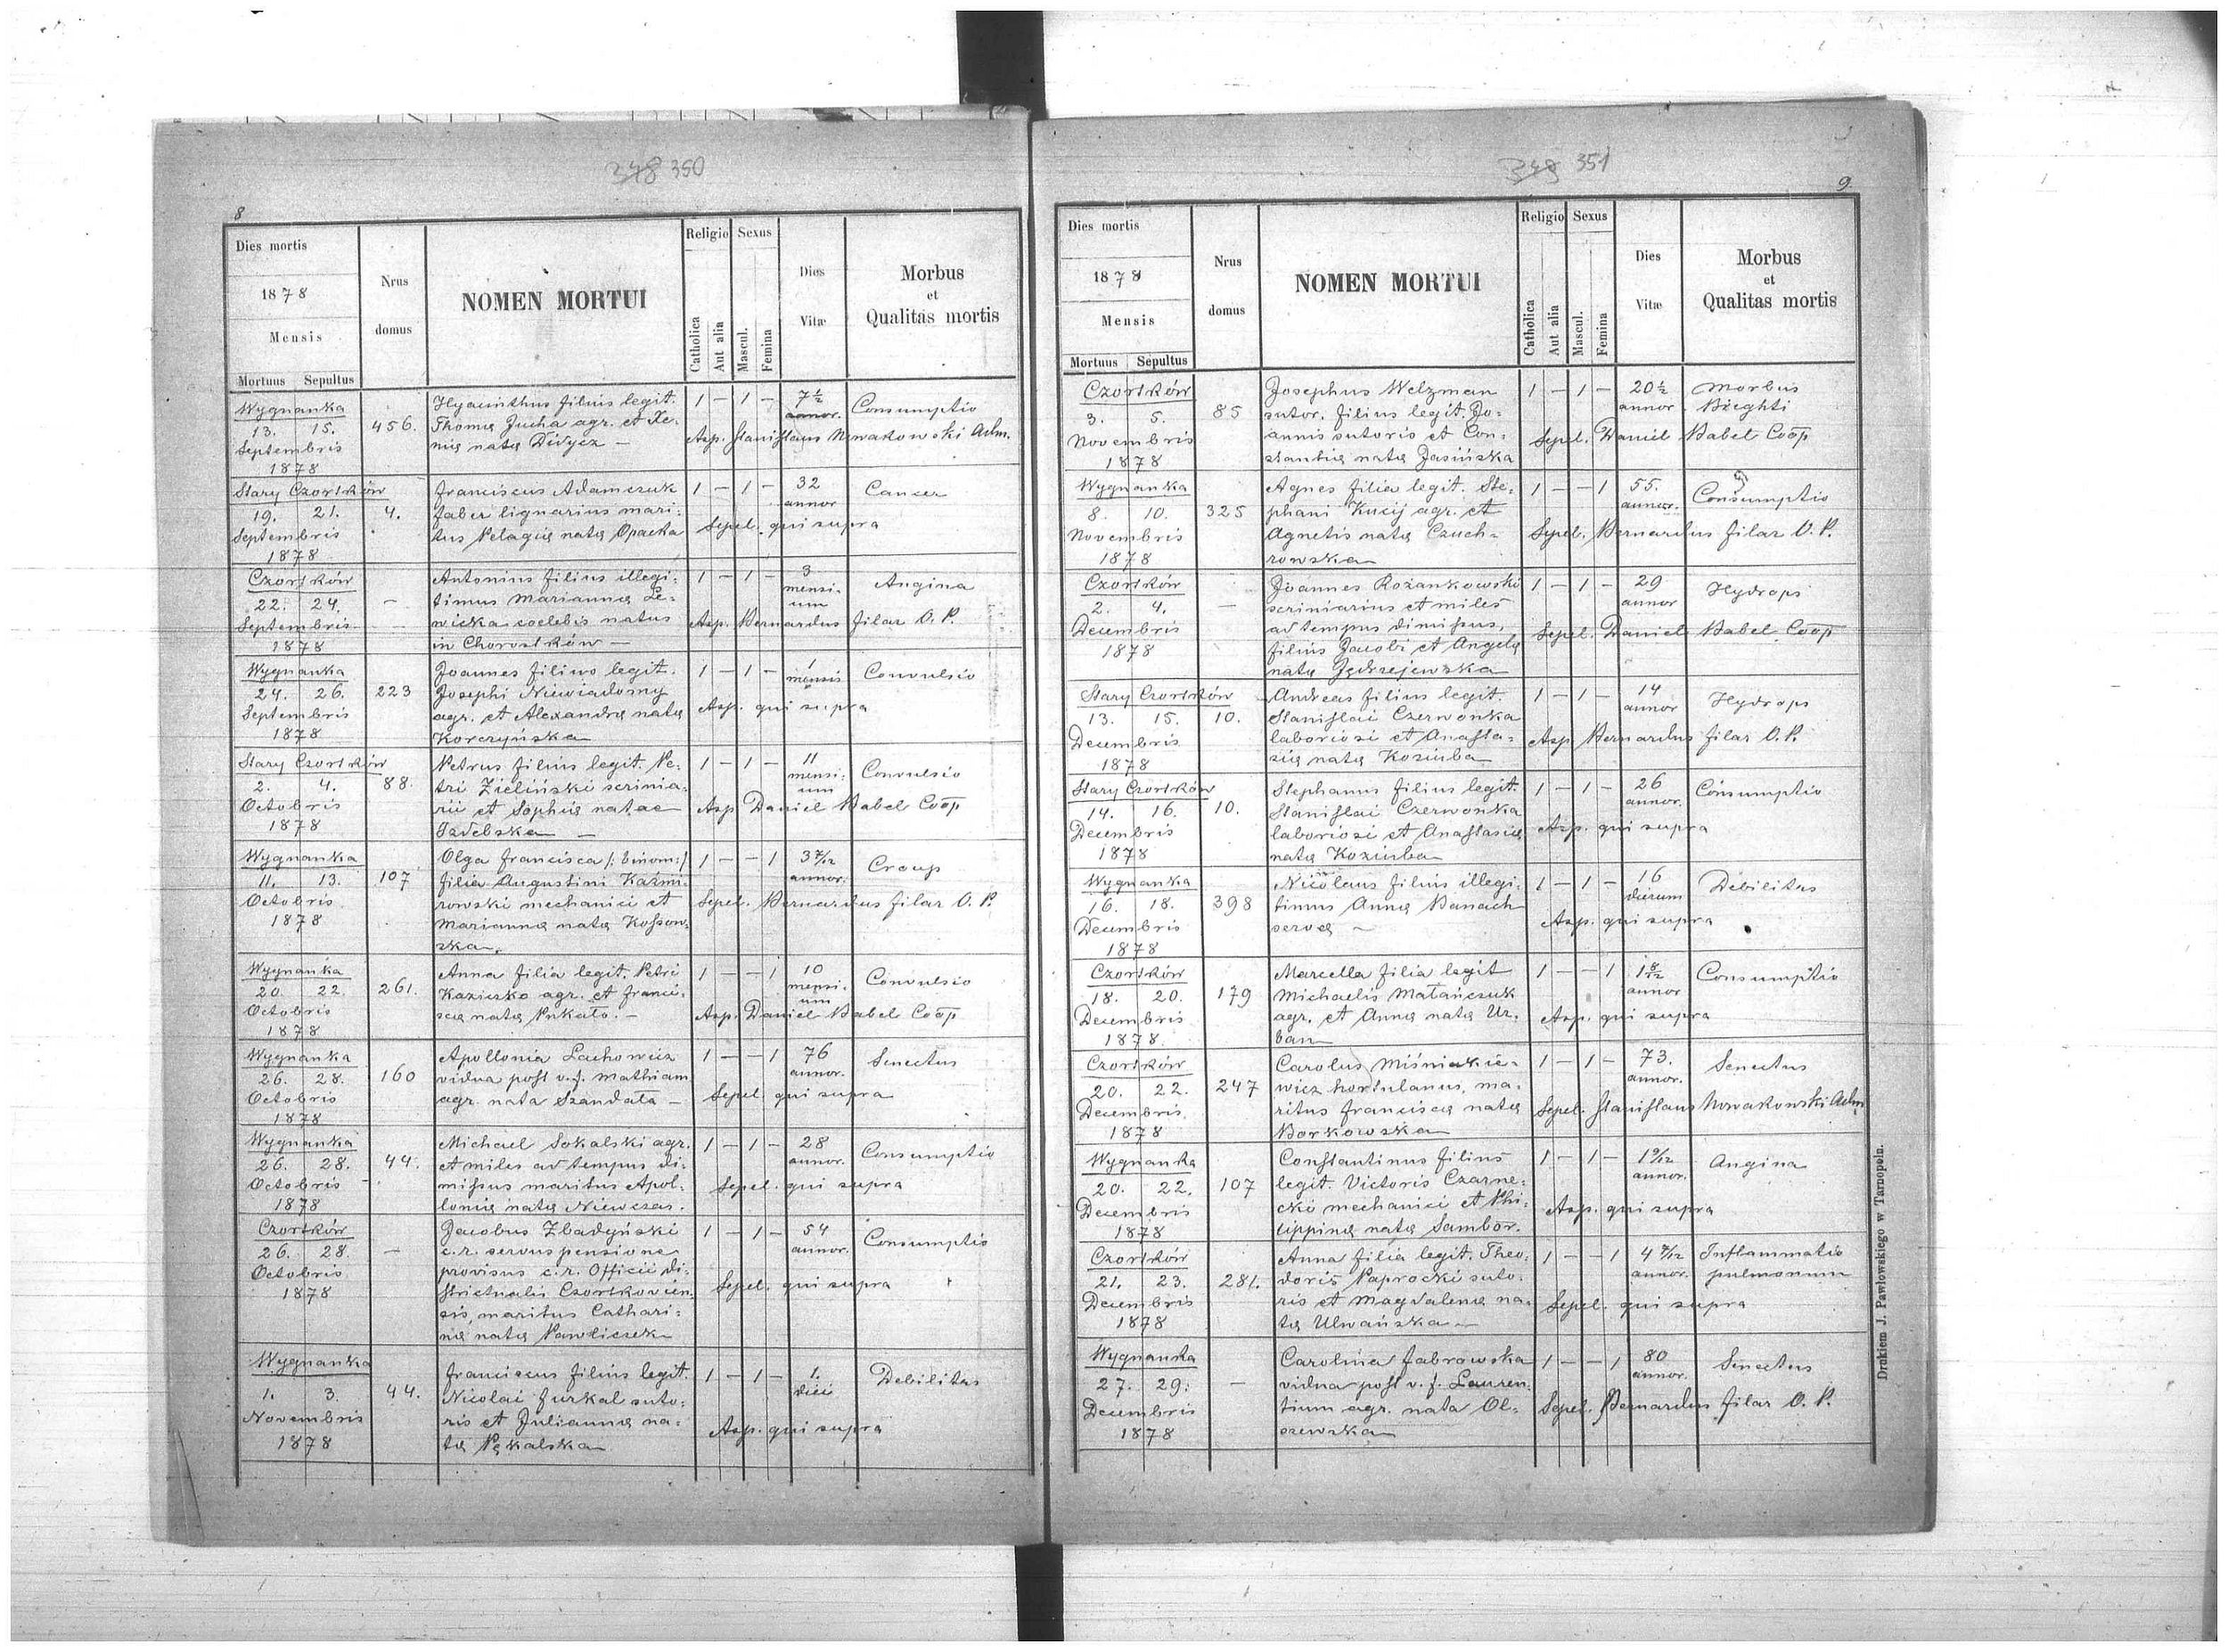 248 350
8
Dies mortis
1878
Mensis
Mortuus Sepultus
Nrus domus
NOMEN MORTUI
Religio Sexus
Catholica
Aut alia
Mascul.
Femina
Dies Vitæ
Morbus et Qualitas mortis
Wygnanka
13. 15.
Septembris
1878
456.
Hyacinthus filius legit.
Thomæ Jucha agr. et Xe-
niæ natæ Didycz —
1 — 1 —
7½ annor.
Consumptio
Asp. Stanislaus Nowakowski Adm.
Stary Czortków
19. 21.
Septembris
1878
4.
Franciscus Adamczuk
faber lignarius mari-
tus Pelagiæ natæ Opacka
1 — 1 —
32 annor
Cancer
Sepel. qui supra
Czortków
22. 24.
Septembris
1878
—
Antonius filius illegi-
timus Mariannæ Le-
wicka coelebis natus
in Chorostków —
1 — 1 —
3 mensi-
um
Angina
Asp. Bernardus Filar O. P.
Wygnanka
24. 26.
Septembris
1878
223
Joannes filius legit.
Josephi Niewiadomy
agr. et Alexandræ natæ
Korczyńska
1 — 1 —
1 mensis
Convulsio
Asp. qui supra
Stary Czortków
2. 4.
Octobris
1878
88.
Petrus filius legit. Pe-
tri Zieliński scrinia-
rii et Sophiæ natae
Izdebska —
1 — 1 —
11 mensi-
um
Convulsio
Asp. Daniel Babel Coop
Wygnanka
11. 13.
Octobris
1878
107
Olga Francisca /: binom :/
filia Augustini Kaźmi-
rowski mechanici et
Mariannæ natæ Kossow-
ska.
1 — — 1
3 7/12 annor.
Croup
Sepel. Bernardus Filar O. P.
Wygnanka
20. 22.
Octobris
1878
261.
Anna filia legit. Petri
Kaziczko agr. et Franci-
scæ natæ Pukało. —
1 — — 1
10 mensi-
um
Convulsio
Asp. Daniel Babel Coop
Wygnanka
26. 28.
Octobris
1878
160
Apollonia Lachowicz
vidua post v. f. Mathiam
agr. nata Szandała —
1 — — 1
76 annor.
Senectus
Sepel. qui supra
Wygnanka
26. 28.
Octobris
1878
44.
Michael Sokalski agr.
et miles ad tempus di-
missus maritus Apol-
loniæ natæ Niewczas.
1 — 1 —
28 annor.
Consumptio
Sepel. qui supra
Czortków
26. 28.
Octobris
1878
—
Jacobus Zbadyński
c. r. servus pensione
provisus c. r. Officii di-
strictualis Czortkovien-
sis, maritus Cathari-
næ natæ Pawliczek
1 — 1 —
54 annor.
Consumptio
Sepel. qui supra
Wygnanka
1. 3.
Novembris
1878
44.
Franciscus filius legit.
Nicolai Furkal suto-
ris et Juliannæ na-
tæ Pękalska
1 — 1 —
1. diei
Debilitas
Asp. qui supra
249 351
9
Dies mortis
1878
Mensis
Mortuus Sepultus
Nrus domus
NOMEN MORTUI
Religio Sexus
Catholica
Aut alia
Mascul.
Femina
Dies Vitæ
Morbus et Qualitas mortis
Czortków
3. 5.
Novembris
1878
85
Josephus Welzman
sutor, filius legit. Jo-
annis sutoris et Con-
stantiæ natæ Jasińska
1 — 1 —
20½ annor.
Morbus
Brighti
Sepel. Daniel Babel Coop
Wygnanka
8. 10.
Novembris
1878
325
Agnes filia legit. Ste-
phani Kucij agr. et
Agnetis natæ Czuch-
rowska
1 — — 1
55. annor.
Consumptio
Sepel. Bernardus Filar O. P.
Czortków
2. 4.
Decembris
1878
—
Joannes Rożankowski
scriniarius et miles
ad tempus dimissus,
filius Jacobi et Angelæ
natæ Jędrzejewska
1 — 1 —
29 annor
Hydrops
Sepel. Daniel Babel Coop
Stary Czortków
13. 15.
Decembris
1878
10.
Andreas filius legit.
Stanislai Czerwonka
laboriosi et Anasta-
siæ natæ Koziuba
1 — 1 —
14 annor
Hydrops
Asp Bernardus Filar O. P.
Stary Czortków
14. 16.
Decembris
1878
10.
Stephanus filius legit.
Stanislai Czerwonka
laboriosi et Anastasiæ
natæ Koziuba
1 — 1 —
26 annor.
Consumptio
Asp. qui supra
Wygnanka
16. 18.
Decembris
1878
398
Nicolaus filius illegi-
timus Annæ Banach
servæ —
1 — 1 —
16 dierum
Debilitas
Asp. qui supra
Czortków
18. 20.
Decembris
1878.
179
Marcella filia legit
Michaelis Matańczuk
agr. et Annæ natæ Ur-
ban
1 — — 1
1 8/12 annor
Consumptio
Asp. qui supra
Czortków
20. 22.
Decembris
1878
247
Carolus Miśniakie-
wicz hortulanus, ma-
ritus Franciscæ natæ
Borkowska
1 — 1 —
73. annor.
Senectus
Sepel. Stanislaus Nowakowski Adm
Wygnanka
20. 22.
Decembris
1878
107
Constantinus filius
legit. Victoris Czarne-
cki mechanici et Phi-
lippinæ natæ Sambor.
1 — 1 —
1 9/12 annor.
Angina
Asp. qui supra
Czortków
21. 23.
Decembris
1878
281.
Anna filia legit. Theo-
doris Paprocki suto-
ris et Magdalenæ na-
tæ Ulwańska —
1 — — 1
4 7/12 annor.
Inflammatio
pulmonum
Sepel. qui supra
Wygnanka
27. 29.
Decembris
1878
—
Carolina Jabrowska
vidua post v. f. Lauren-
tium agr. nata Ol-
szewska
1 — — 1
80 annor.
Senectus
Sepel. Bernardus Filar O. P.
Drukiem J. Pawłowskiego w Tarnopolu.